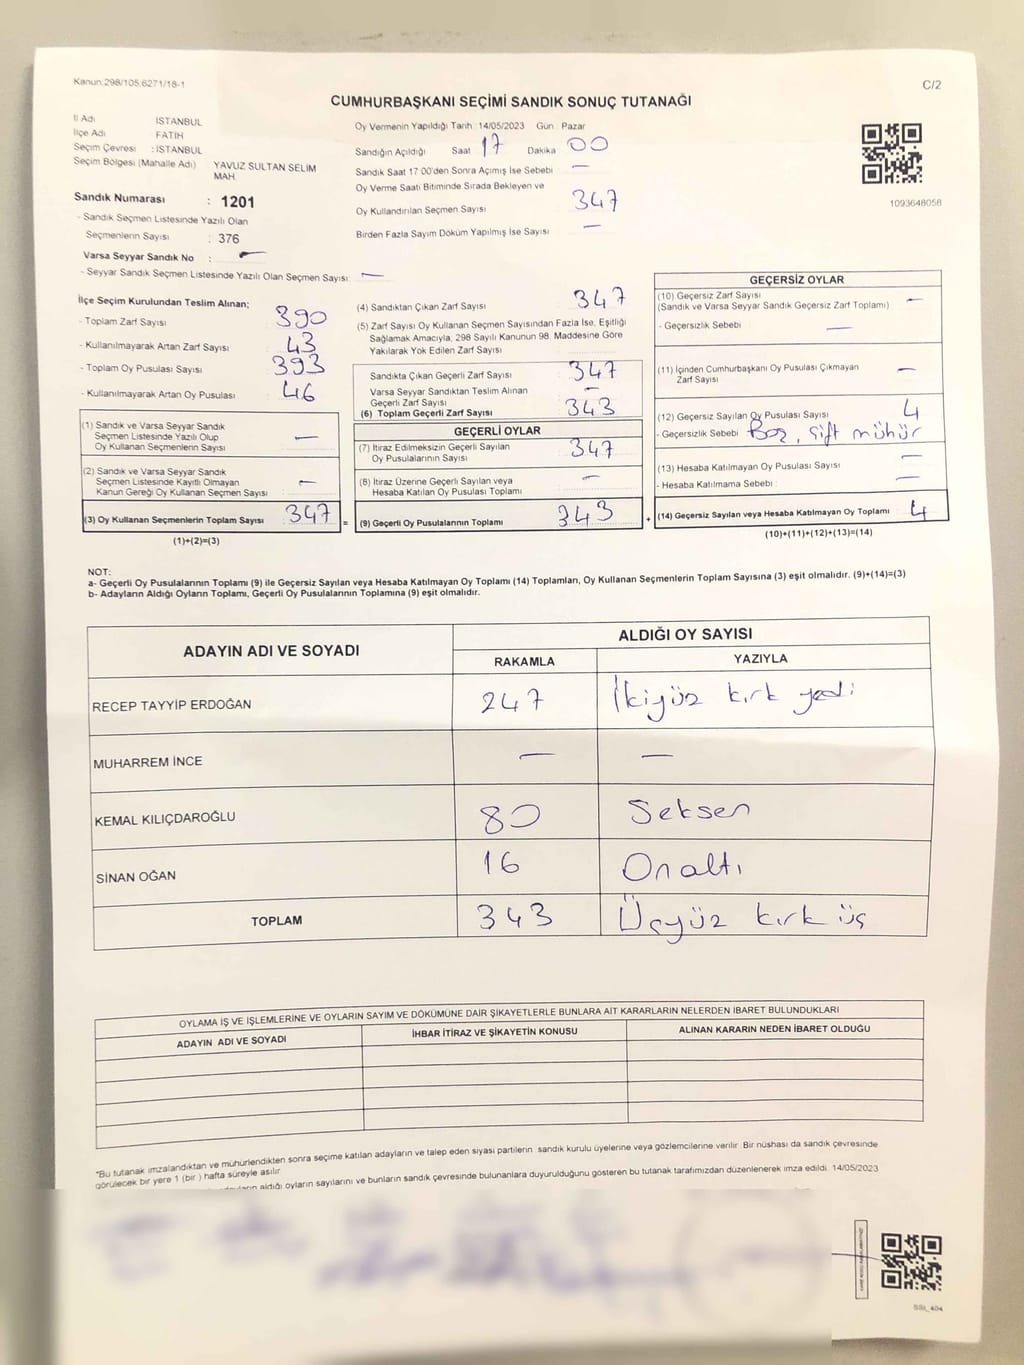 Kanun:298/105,6271/18-1
C/2
CUMHURBAŞKANI SEÇİMİ SANDIK SONUÇ TUTANAĞI
İl Adı : İSTANBUL
İlçe Adı : FATİH
Seçim Çevresi : İSTANBUL
Seçim Bölgesi (Mahalle Adı) YAVUZ SULTAN SELİM
MAH.
Sandık Numarası : 1201
- Sandık Seçmen Listesinde Yazılı Olan
Seçmenlerin Sayısı : 376
Varsa Seyyar Sandık No : —
- Seyyar Sandık Seçmen Listesinde Yazılı Olan Seçmen Sayısı: —
Oy Vermenin Yapıldığı Tarih: 14/05/2023 Gün: Pazar
Sandığın Açıldığı Saat 17 Dakika 00
Sandık Saat 17.00'den Sonra Açılmış İse Sebebi —
Oy Verme Saati Bitiminde Sırada Bekleyen ve
Oy Kullandırılan Seçmen Sayısı 347
Birden Fazla Sayım Döküm Yapılmış İse Sayısı —
1093648058
İlçe Seçim Kurulundan Teslim Alınan;
- Toplam Zarf Sayısı 390
- Kullanılmayarak Artan Zarf Sayısı 43
- Toplam Oy Pusulası Sayısı 393
- Kullanılmayarak Artan Oy Pusulası 46
(1) Sandık ve Varsa Seyyar Sandık
Seçmen Listesinde Yazılı Olup
Oy Kullanan Seçmenlerin Sayısı —
(2) Sandık ve Varsa Seyyar Sandık
Seçmen Listesinde Kayıtlı Olmayan
Kanun Gereği Oy Kullanan Seçmen Sayısı —
(3) Oy Kullanan Seçmenlerin Toplam Sayısı 347 =
(1)+(2)=(3)
(4) Sandıktan Çıkan Zarf Sayısı 347
(5) Zarf Sayısı Oy Kullanan Seçmen Sayısından Fazla İse, Eşitliği
Sağlamak Amacıyla, 298 Sayılı Kanunun 98. Maddesine Göre
Yakılarak Yok Edilen Zarf Sayısı
Sandıkta Çıkan Geçerli Zarf Sayısı 347
Varsa Seyyar Sandıktan Teslim Alınan
Geçerli Zarf Sayısı —
(6) Toplam Geçerli Zarf Sayısı 343
GEÇERLİ OYLAR
(7) İtiraz Edilmeksizin Geçerli Sayılan
Oy Pusulalarının Sayısı 347
(8) İtiraz Üzerine Geçerli Sayılan veya
Hesaba Katılan Oy Pusulası Toplamı —
(9) Geçerli Oy Pusulalarının Toplamı 343 +
GEÇERSİZ OYLAR
(10) Geçersiz Zarf Sayısı
(Sandık ve Varsa Seyyar Sandık Geçersiz Zarf Toplamı) —
- Geçersizlik Sebebi —
(11) İçinden Cumhurbaşkanı Oy Pusulası Çıkmayan
Zarf Sayısı —
(12) Geçersiz Sayılan Oy Pusulası Sayısı 4
- Geçersizlik Sebebi Boş, çift mühür
(13) Hesaba Katılmayan Oy Pusulası Sayısı —
- Hesaba Katılmama Sebebi : —
(14) Geçersiz Sayılan veya Hesaba Katılmayan Oy Toplamı 4
(10)+(11)+(12)+(13)=(14)
NOT:
a- Geçerli Oy Pusulalarının Toplamı (9) ile Geçersiz Sayılan veya Hesaba Katılmayan Oy Toplamı (14) Toplamları, Oy Kullanan Seçmenlerin Toplam Sayısına (3) eşit olmalıdır. (9)+(14)=(3)
b- Adayların Aldığı Oyların Toplamı, Geçerli Oy Pusulalarının Toplamına (9) eşit olmalıdır.
ADAYIN ADI VE SOYADI
ALDIĞI OY SAYISI
RAKAMLA YAZIYLA
RECEP TAYYİP ERDOĞAN 247 İkiyüz kırk yedi
MUHARREM İNCE — —
KEMAL KILIÇDAROĞLU 80 Seksen
SİNAN OĞAN 16 Onaltı
TOPLAM 343 Üçyüz kırk üç
OYLAMA İŞ VE İŞLEMLERİNE VE OYLARIN SAYIM VE DÖKÜMÜNE DAİR ŞİKAYETLERLE BUNLARA AİT KARARLARIN NELERDEN İBARET BULUNDUKLARI
ADAYIN ADI VE SOYADI İHBAR İTİRAZ VE ŞİKAYETİN KONUSU ALINAN KARARIN NEDEN İBARET OLDUĞU
*Bu tutanak imzalandıktan ve mühürlendikten sonra seçime katılan adayların ve talep eden siyasi partilerin sandık kurulu üyelerine veya gözlemcilerine verilir. Bir nüshası da sandık çevresinde
görülecek bir yere 1 (bir) hafta süreyle asılır.
aldığı oyların sayılarını ve bunların sandık çevresinde bulunanlara duyurulduğunu gösteren bu tutanak tarafımızdan düzenlenerek imza edildi. 14/05/2023